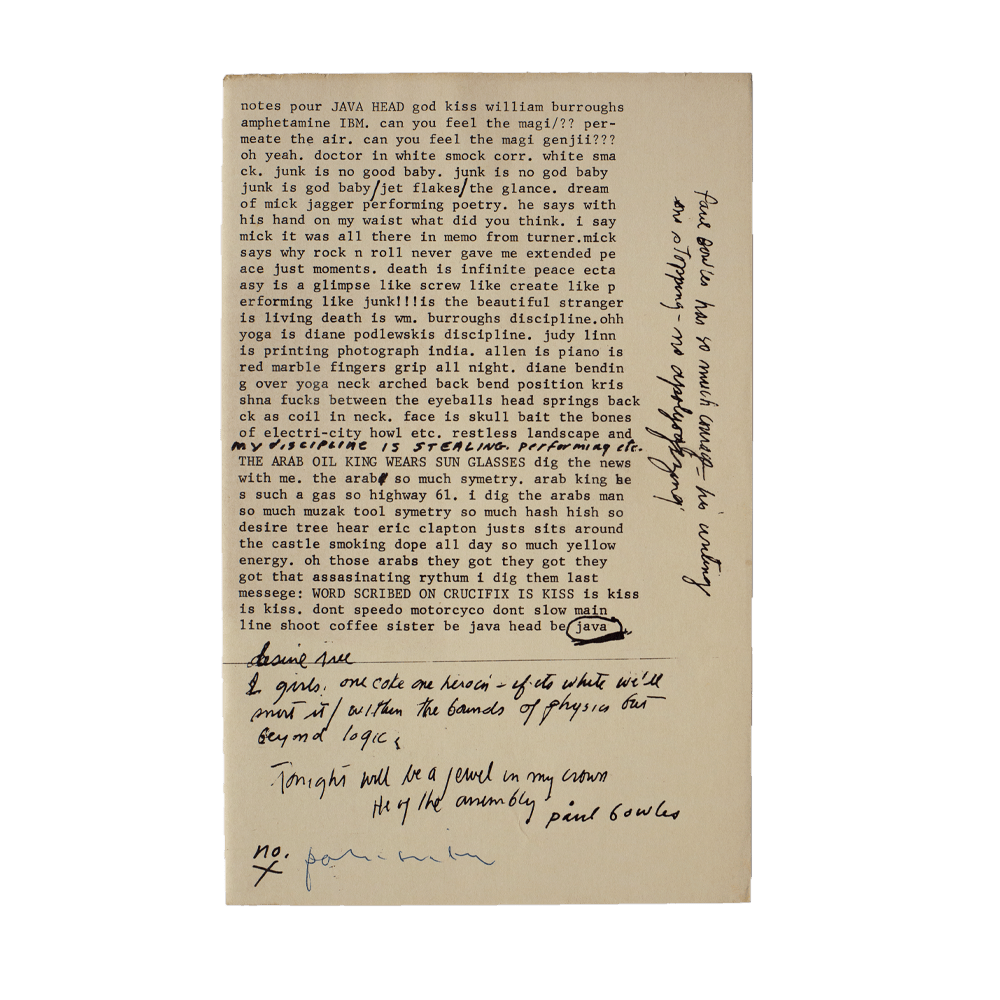 notes pour JAVA HEAD god kiss william burroughs
amphetamine IBM. can you feel the magi/?? per-
meate the air. can you feel the magi genjii???
oh yeah. doctor in white smock corr. white sma
ck. junk is no good baby. junk is no god baby
junk is god baby/jet flakes/the glance. dream
of mick jagger performing poetry. he says with
his hand on my waist what did you think. i say
mick it was all there in memo from turner.mick
says why rock n roll never gave me extended pe
ace just moments. death is infinite peace ecta
asy is a glimpse like screw like create like p
erforming like junk!!!is the beautiful stranger
is living death is wm. burroughs discipline.ohh
yoga is diane podlewskis discipline. judy linn
is printing photograph india. allen is piano is
red marble fingers grip all night. diane bendin
g over yoga neck arched back bend position kris
shna fucks between the eyeballs head springs back
ck as coil in neck. face is skull bait the bones
of electri-city howl etc. restless landscape and
my discipline IS STEALING. performing etc.
THE ARAB OIL KING WEARS SUN GLASSES dig the news
with me. the arab so much symetry. arab king he
s such a gas so highway 61. i dig the arabs man
so much muzak tool symetry so much hash hish so
desire tree hear eric clapton justs sits around
the castle smoking dope all day so much yellow
energy. oh those arabs they got they got they
got that assasinating rythum i dig them last
messege: WORD SCRIBED ON CRUCIFIX IS KISS is kiss
is kiss. dont speedo motorcyco dont slow main
line shoot coffee sister be java head be java
desire tree
2 girls. one coke one heroin - if its white we'll
snort it/ within the bounds of physics but
beyond logic
Tonight will be a jewel in my crown
He of the assembly paul bowles
no.
X
Paul Bowles has so much courage - his writing
no stopping - no